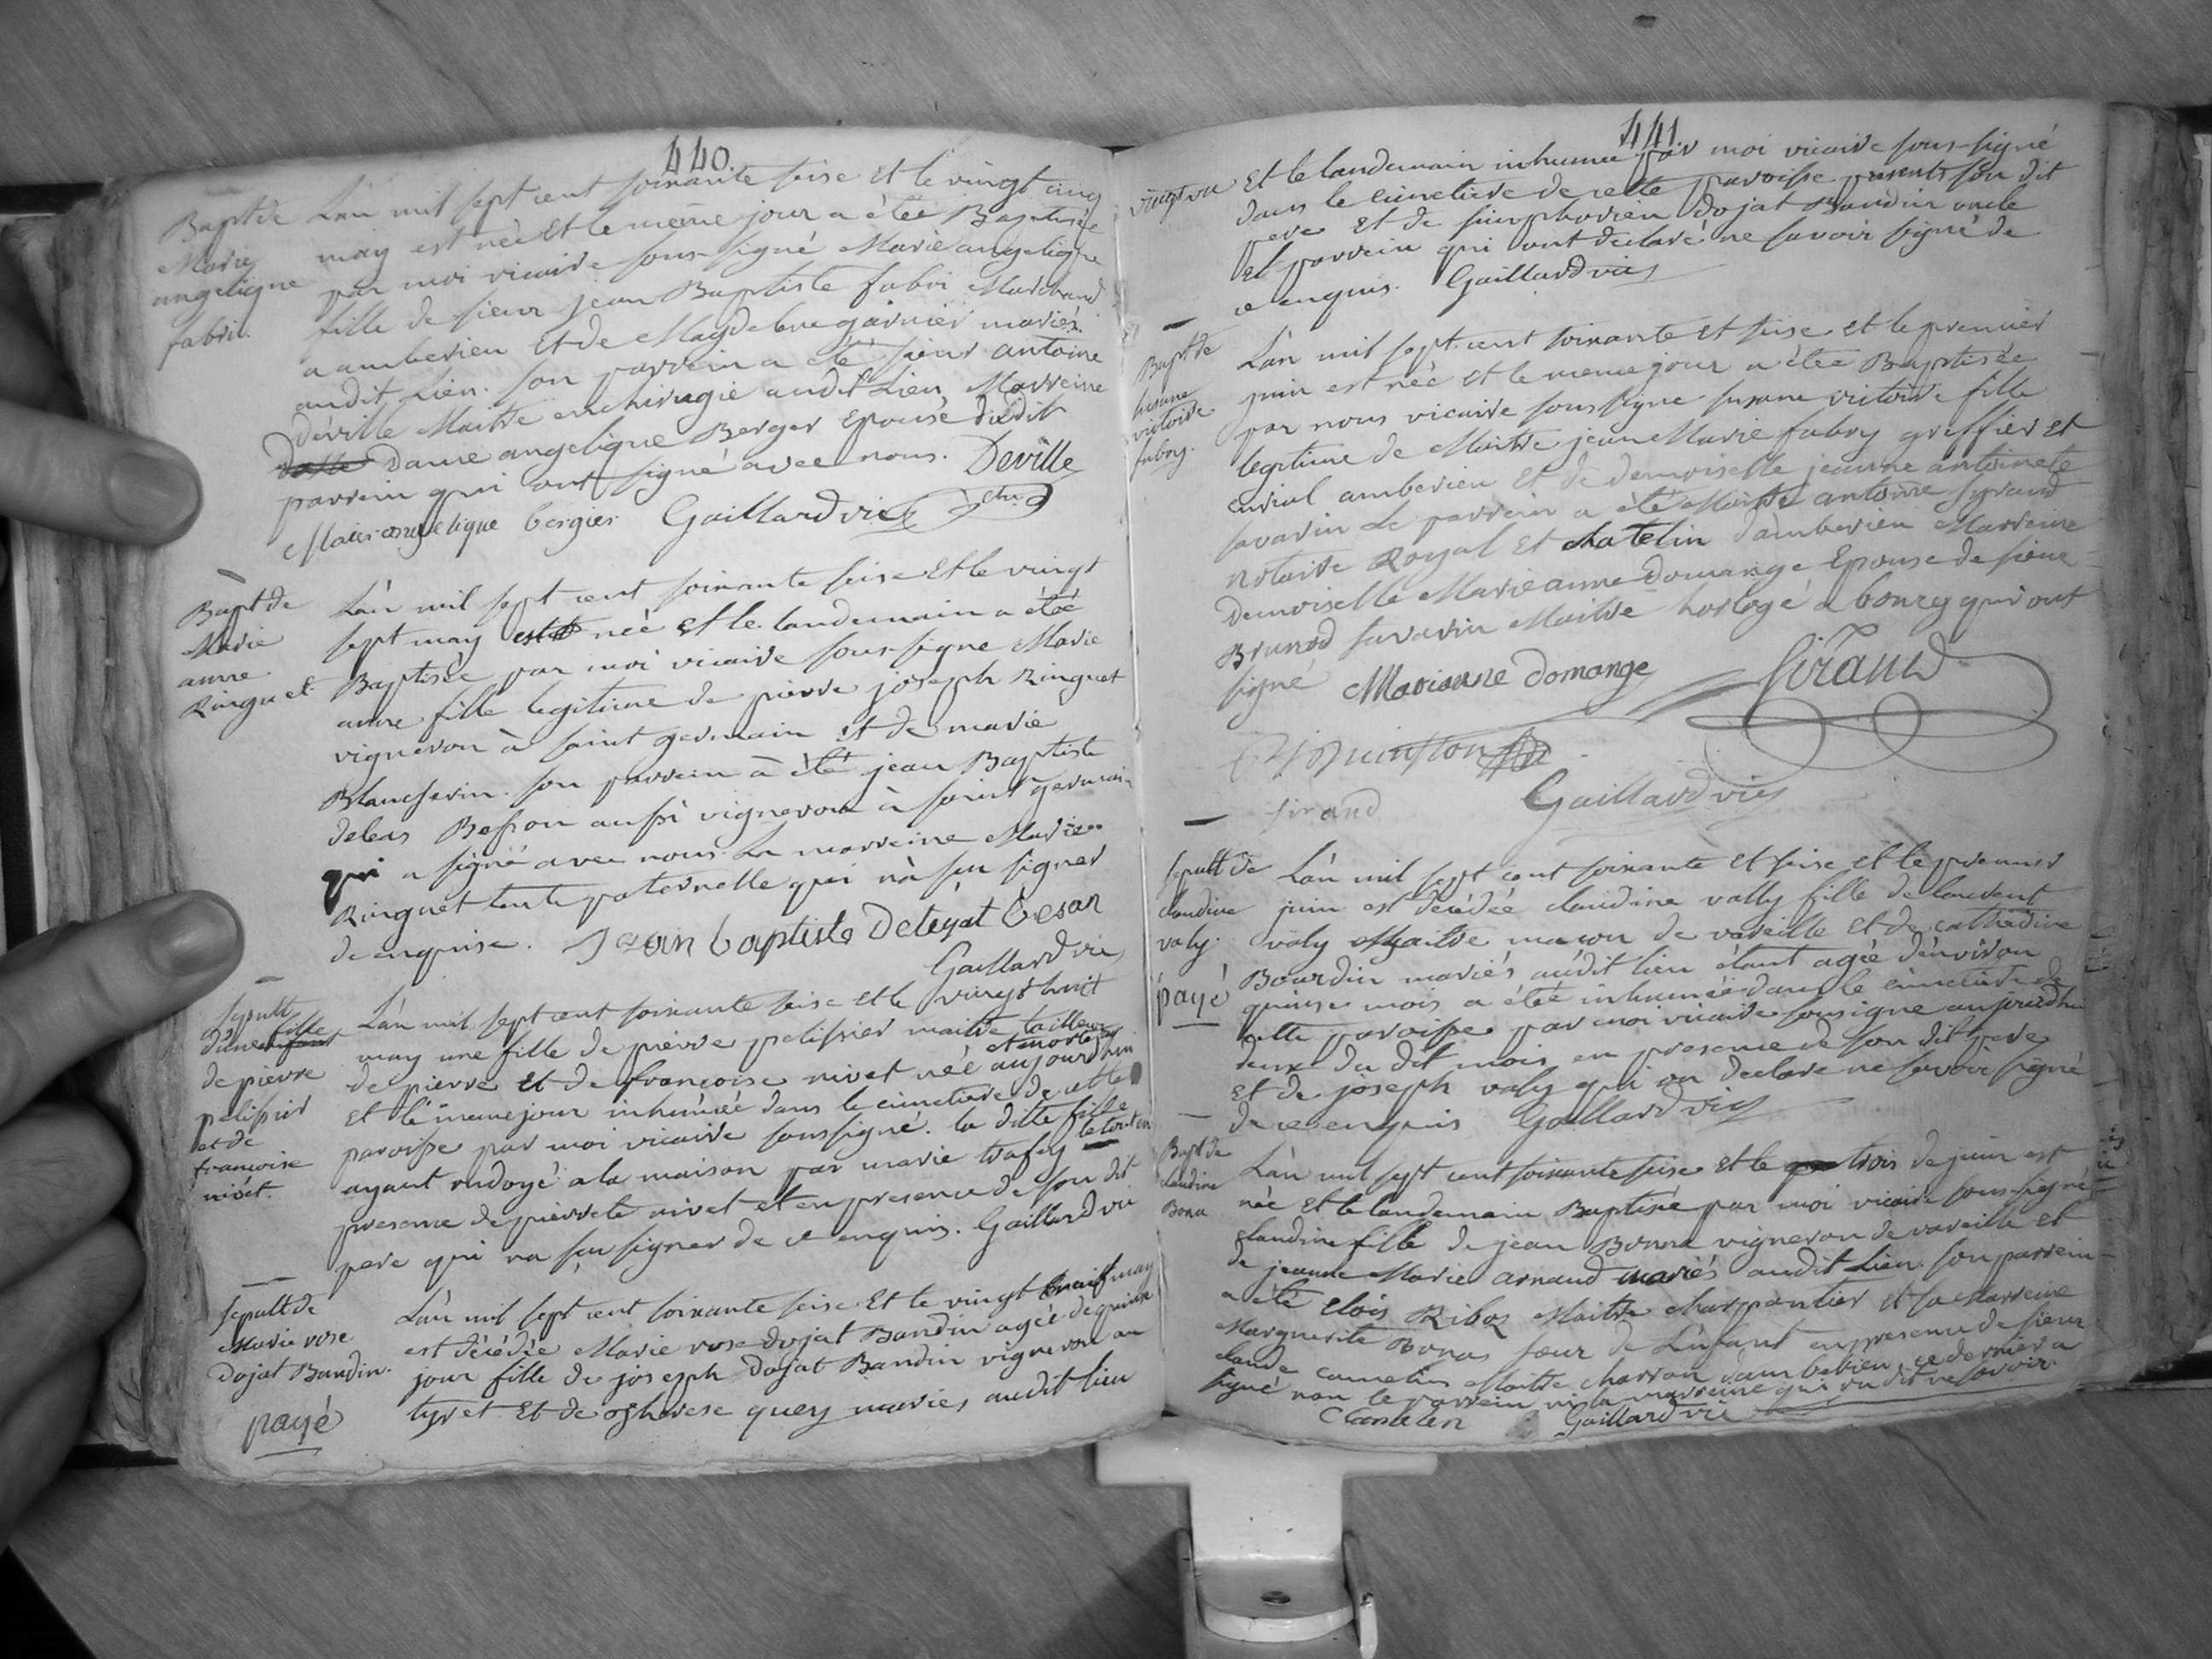 440.
Bapt de Marie angelique fabri.
L'an mil sept cent soixante seise et le vingt cinq
may est née et le meme jour a étée Baptisée
par moi vicaire sous-signé Marie angelique
fille de sieur jean Baptiste fabri Marchand
a amberieu et de Magdelene garnier mariés
audit Lieu. son parrein a été sieur antoine
déville Maitre en chirugie audit Lieu, Marreine
Dame angelique Berger Epouse dudit
parrein qui ont signé avec nous. Deville
Marie angelique bergier Gaillard vic chir.
Bapt de Marie anne Ringuet
L'an mil sept cent soixante seise et le vingt
sept may est née et le landemain a étée
Baptisée par moi vicaire sous-signe Marie
anne fille legitime de pierre joseph Ringuet
vigneron à saint germain et de marie
Blancherin. son parrein à été jean Baptiste
Besson aussi vigneron à saint germain
qui a signé avec nous. La marreine Marie
Ringuet tante paternelle qui n'a su signer
de enquise. Jean baptiste
Gaillard vic
sepult d'une fille de pierre pelissier et de francoise nivet.
L'an mil sept cent soixante seise et le vingt huit
may une fille de pierre pelissier maitre tailleur
de pierre et de françoise nivet née et morte aujourdhui
et le meme jour inhumée dans le cimetiere de cette
paroisse par moi vicaire soussigné. la ditte fille
ayant ondoyé a la maison par marie le tout en
presence de pierrete nivet et en presence de son dit
pere qui na su signer de ce enquis. Gaillard vic
sepult de Marie rose Dojat Baudin.
payé
L'an mil sept cent soixante seise et le vingt neuf may
est décédée Marie rose dojat Baudin agée de quinse
jour fille de joseph Dojat Baudin vigneron au
tyret et de therese quey mariés audit lieu
441.
vingt vu et le landemain inhumée par moi vicaire sous-signé
dans le cimetiere de cette paroisse presents son dit
pere et de simphorien Dojat Baudin oncle
et parrein qui ont declaré ne savoir signé de
ce enquis. Gaillard vic
Bapt de susane victoire fabry.
L'an mil sept cent soixante et seise et le premier
juin est née et le meme jour a étée Baptisée
par nous vicaire soussigne susane victoire fille
legitime de Maitre jean Marie fabry greffier et
curial amberieu et de demoiselle jeanne antoinete
savarin Le parrein a été Maitre antoine syrand
notaire Royal et chatelin damberieu Marreine
Demoiselle Marie anne Domange Epouse de sieur
Brunod savarin Maitre horlogé a bourg qui ont
signé Marianne Domange Sirand
sirand Gaillard vic
sepult de claudine valy.
payé
L'an mil sept cent soixante et seise et le premier
juin est décédée claudine vally fille de laurent
valy Maitre maçon de vareille et de catherine
Bourdin mariés audit lieu étant agée d'environ
quinse mois a étée inhumée dans le cimetiere de
cette paroisse par moi vicaire sousigne aujourdhui
deux du dit mois en presence de son dit pere
et de joseph valy qui on declare ne savoir signé
de ce enquis Gaillard vic
Bapt de claudine Bona
L'an mil sept cent soixante seise et le trois de juin est
née et le landemain Baptisée par moi vicaire sous-signé
claudine fille de jean Bonna vigneron de vareille et
de jeanne Marie arnaud mariés audit Lieu. son parrein
a été elois Ribos Maitre charpantier et sa Marreine
Marguerite Bonas soeur de L'enfant en presence de sieur
claude camelin Maitre charron damberieu, ce dernier a
signé non le parrein ni la marreine qui on dit ne savoir.
Camelin Gaillard vic